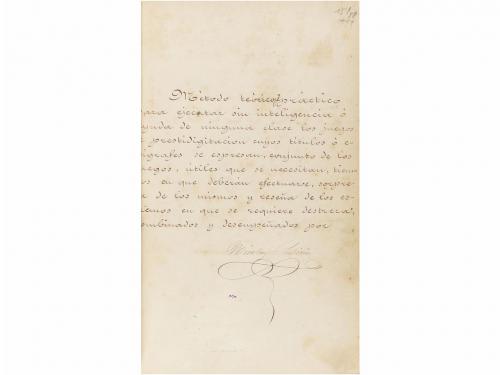 Método teórico práctico
para ejecutar sin inteligencia ó
ayuda de ninguna clase los juegos
e prestidigitacion cuyos títulos ó e-
ígrafes se espresan, conjunto de los
uegos, útiles que se necesitan, tiem-
os en que deberán efectuarse, sorpre-
a de los mismos y reseña de los es-
emos en que se requiere destreza,
ombinados y desempeñados por